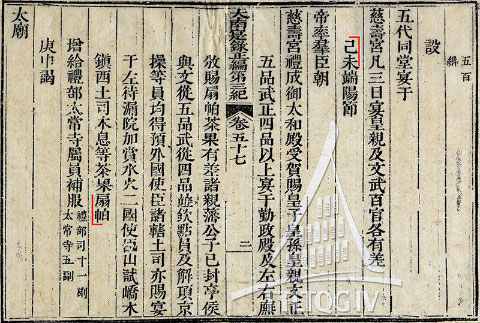 五百
緡
設
五代同堂宴于
慈壽宮凡三日宴皇親及文武百官各有差
己未端陽節
帝率羣臣朝
慈壽宮禮成御太和殿受賀賜皇子皇孫皇親文正
五品武正四品以上宴于勤政殿及左右廡
大南寔錄正編第三紀 卷五十七 二
攽賜扇帕茶果有差諸親藩公子已封亭侯
與文從五品武從四品並欽點員及解項京
操等員均得預外國使臣諸轄土司亦賜宴
于左待漏院加賞水火二國使臣山試嶠木
鎮西土司木息等茶果扇帕
增給禮部太常寺屬員補服 禮部司十一副
太常寺五副
庚申謁
太廟
TTLTQG IV